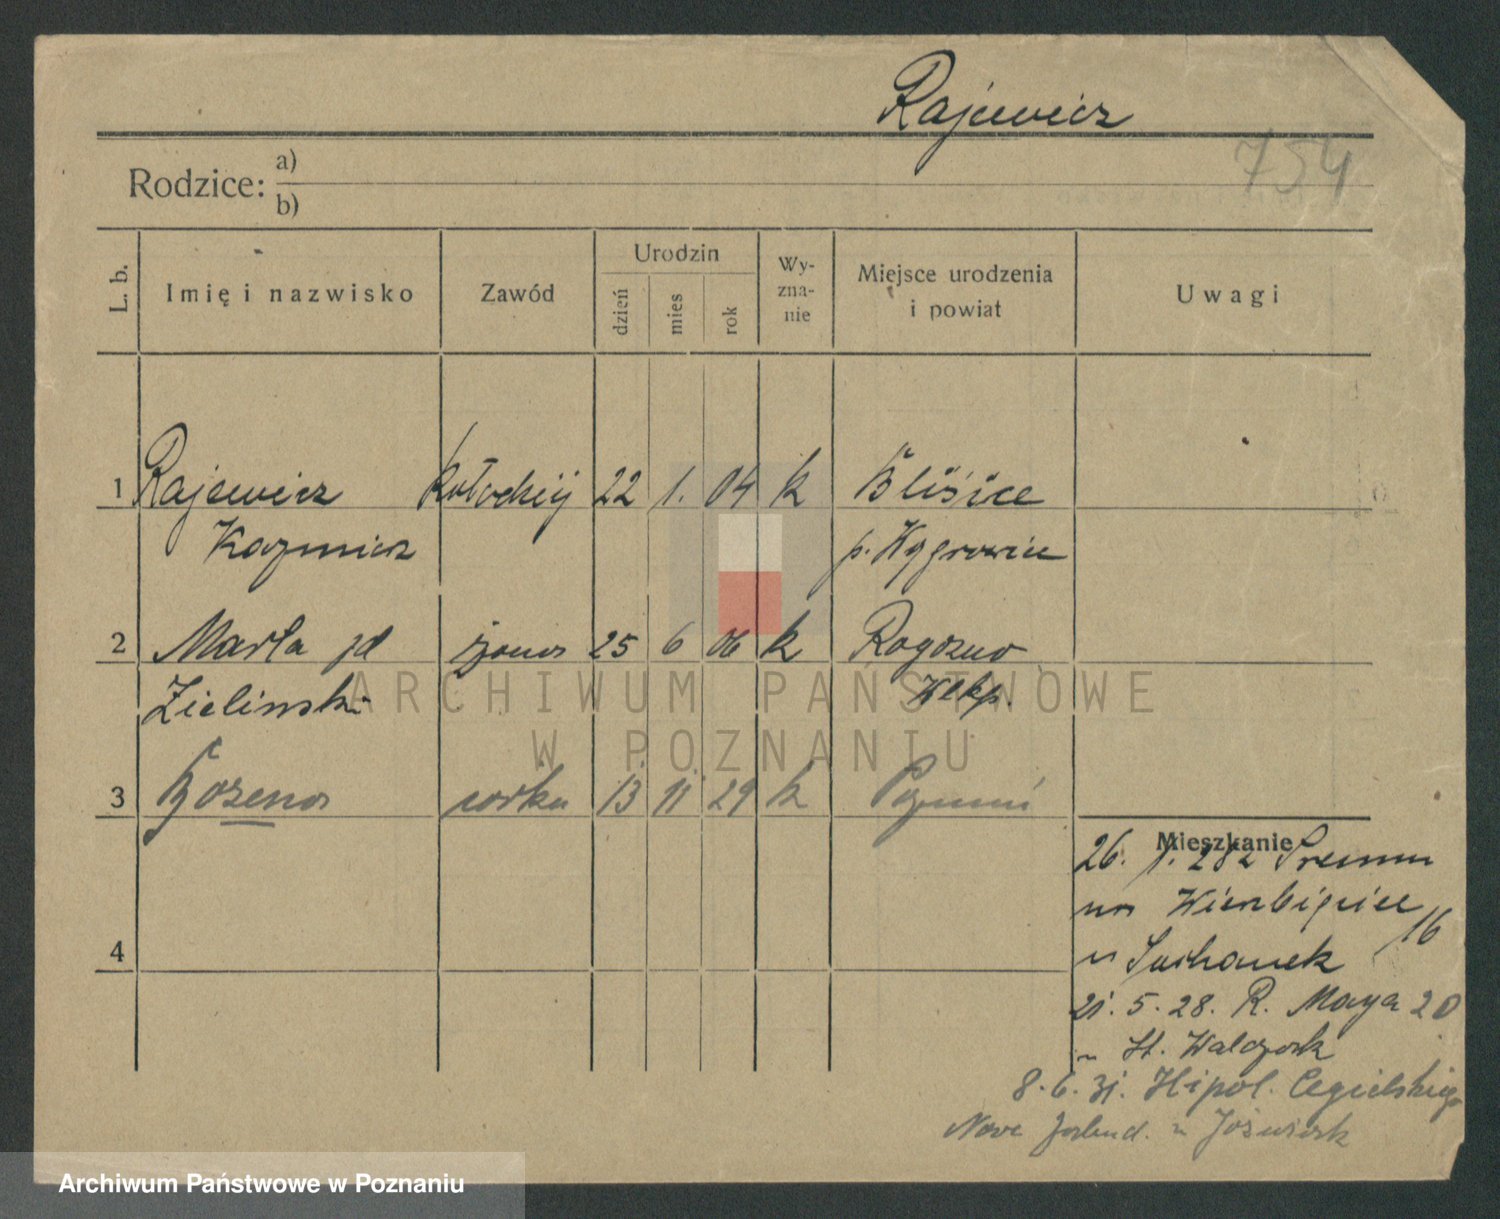 Rajewicz
754
Rodzice: a)
b)
L. b. Imię i nazwisko Zawód Urodzin dzień mies rok Wy-zna-nie Miejsce urodzenia i powiat Uwagi
1 Rajewicz kołodziij 22 1. 04 k Bliżice
Kazmierz p. Wągrowiec
2 Marta zd żona 25 6 06 k Rogozno
Zielinski Wlkp.
3 Bożena córka 13 11 29 k Poznań
Mieszkanie
26. 1. 282 Sremu
na Wierzbięcice 16
u Suchanek
4
21. 5. 28. R. Maya 20
u St. Walczak
8. 6. 31. Hipol. Cegielskiego
Nowe u Jóżwiak
ARCHIWUM PAŃSTWOWE
W POZNANIU
Archiwum Państwowe w Poznaniu